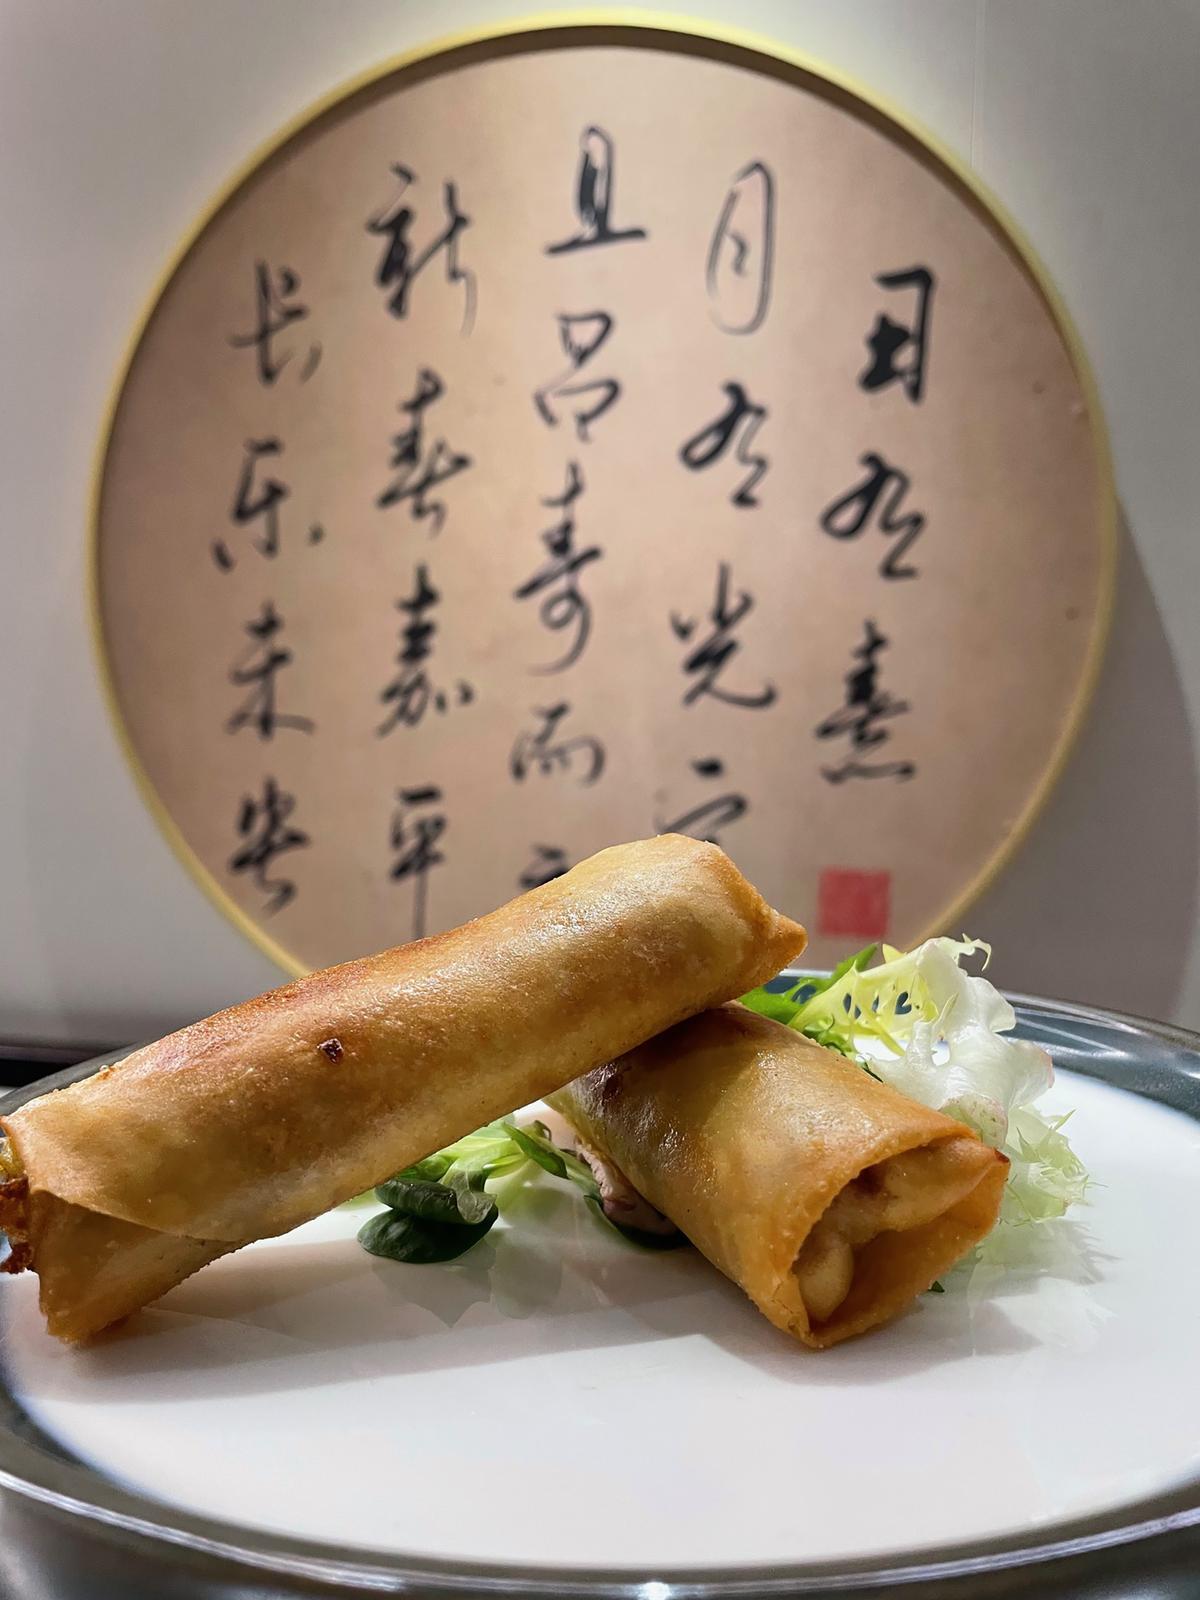 日有熹
月有光
且昌寿而
新春嘉平
长乐未央